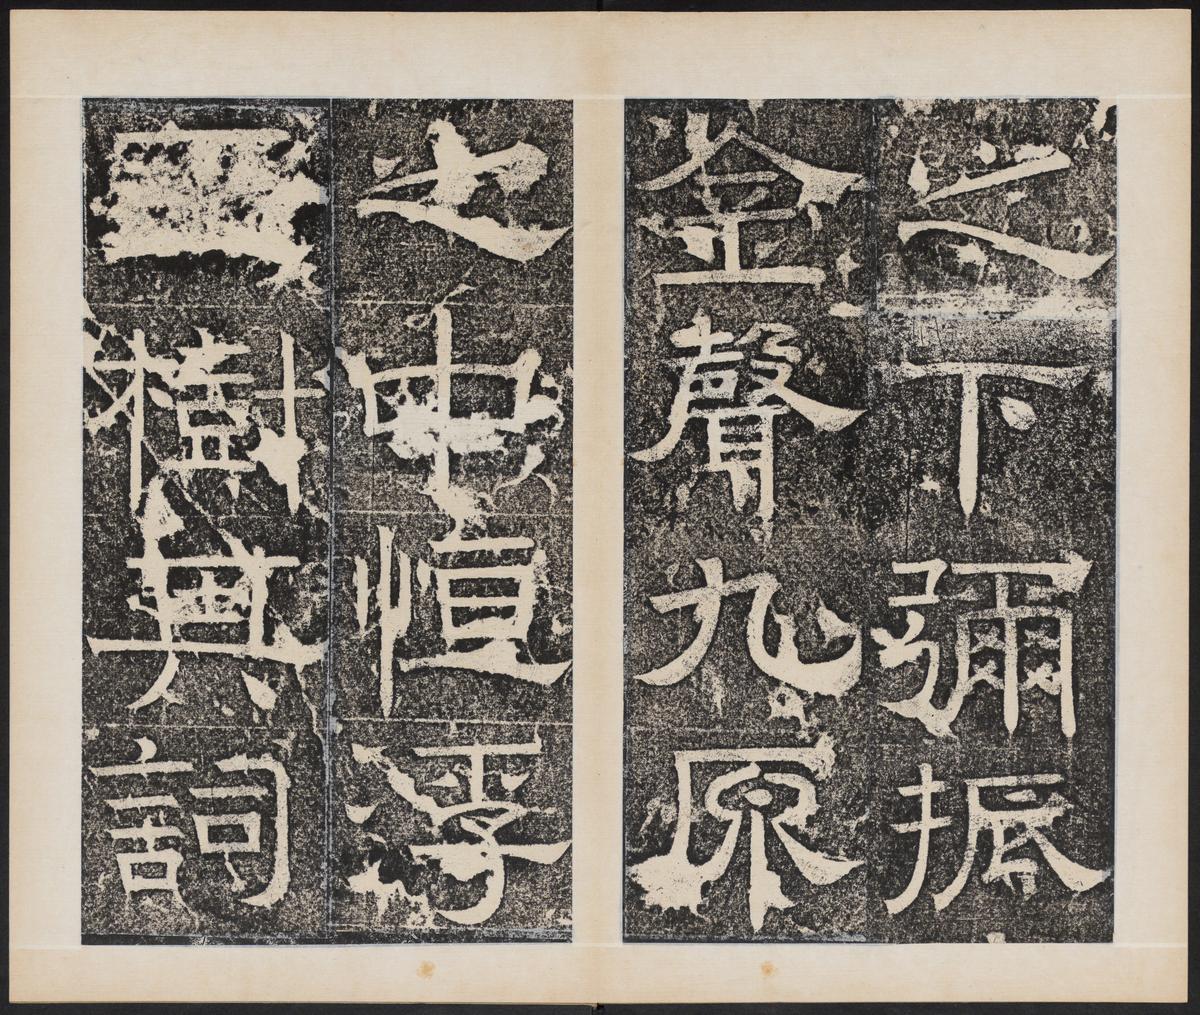 之下彌振
金聲九原
之中恒浮
樹其詞